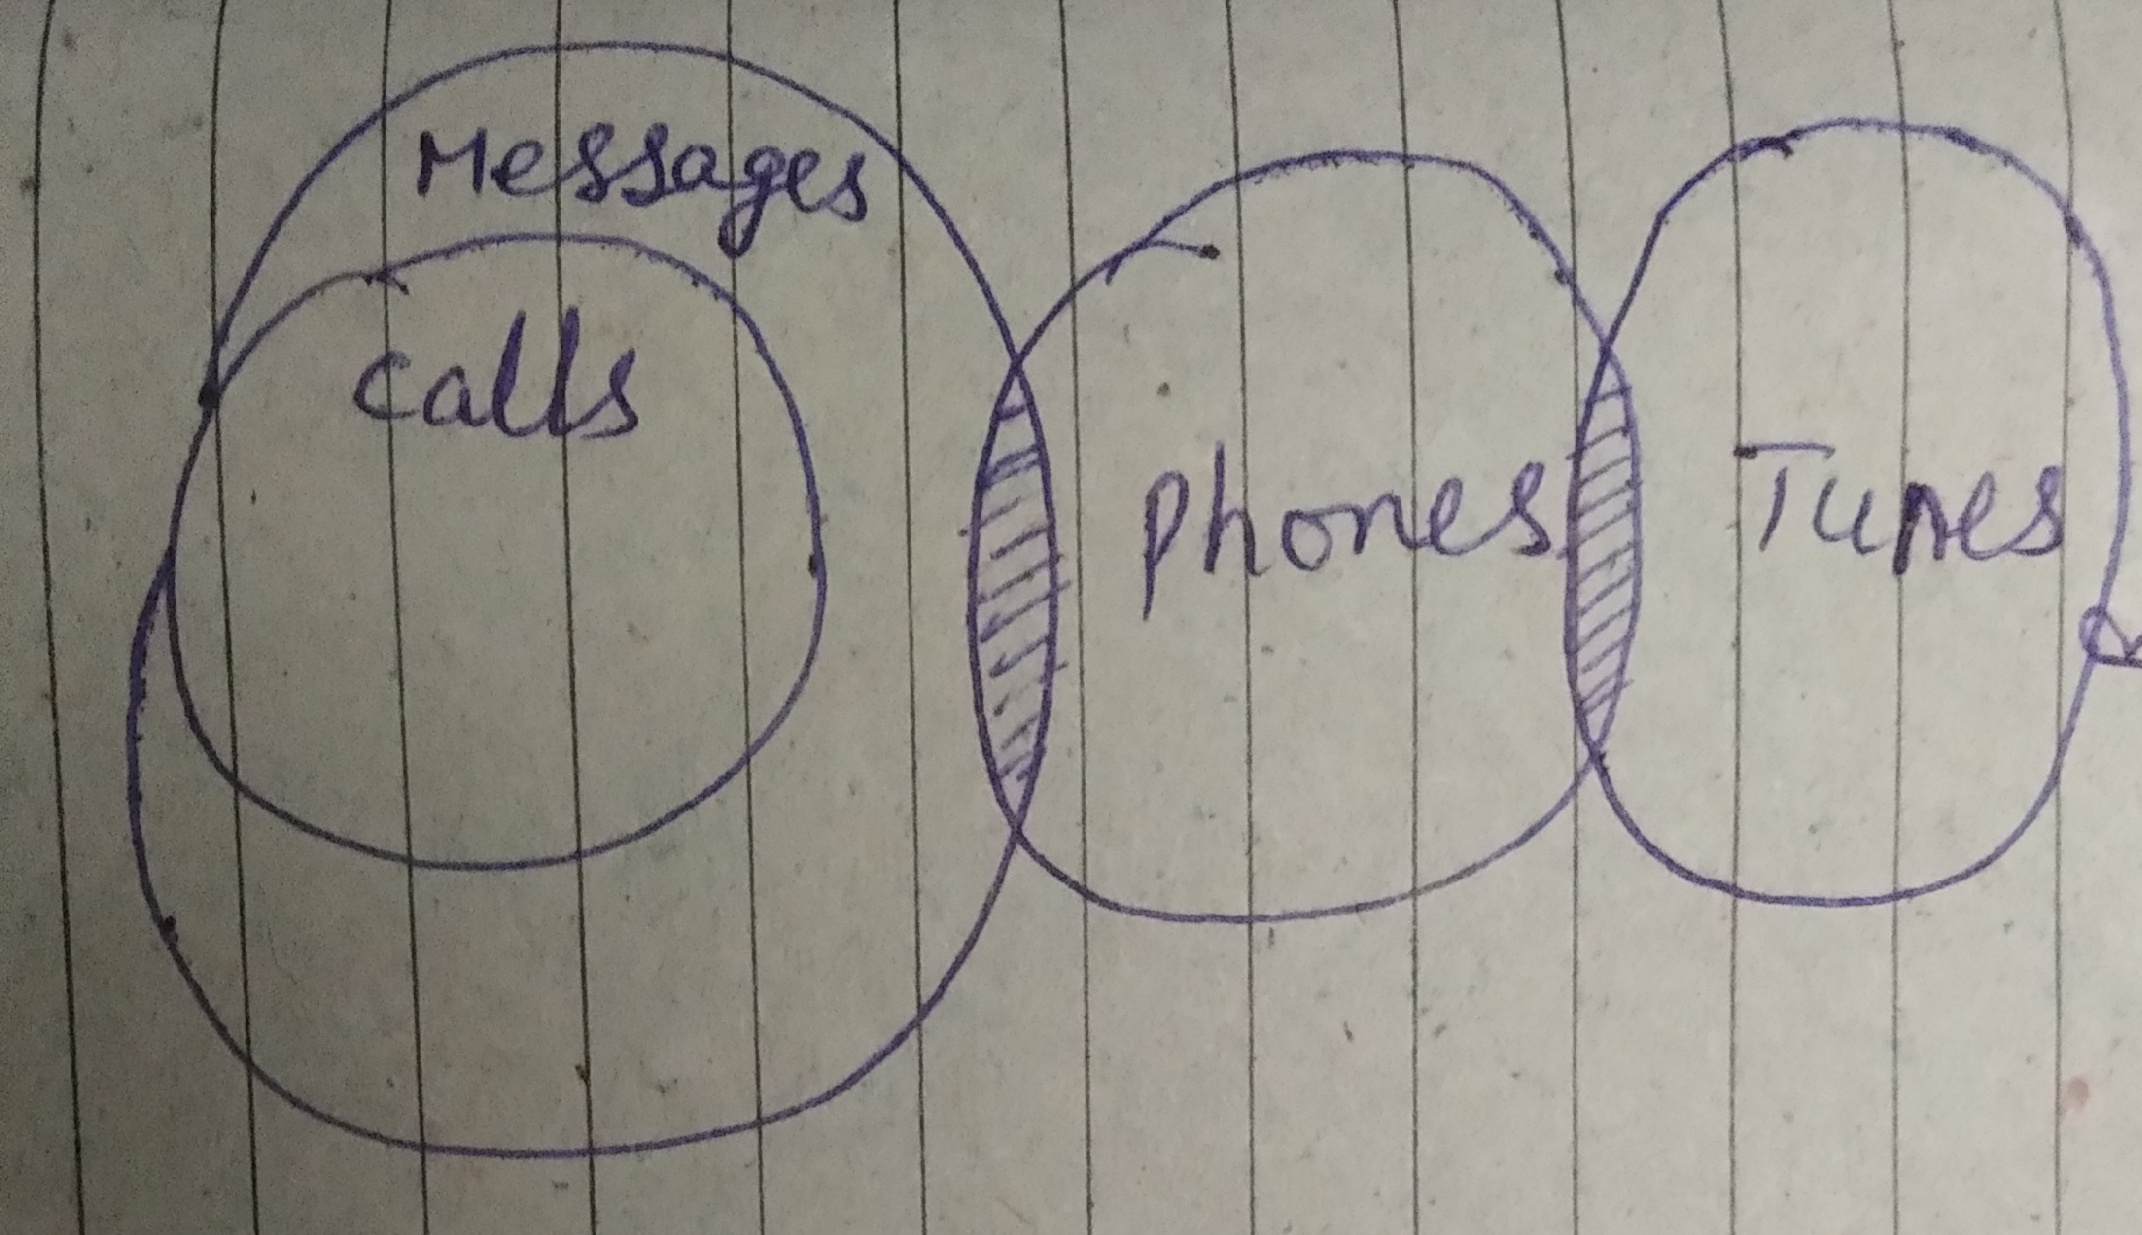 Messages
calls
phones
Tunes